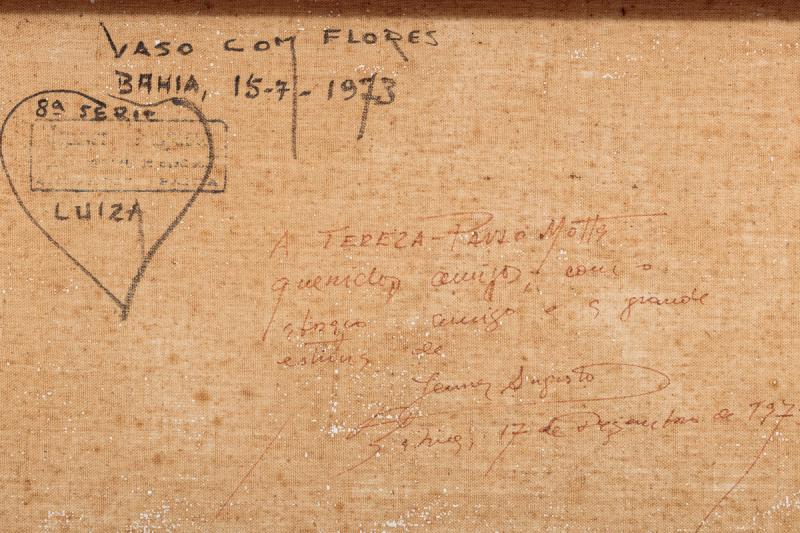 VASO COM FLORES
BAHIA, 15-7-1973
8ª SERIE
LUIZA
A TEREZA-PAULO MOTTA
queridos amigos, com o
abraço amigo e a grande
estima de
Jenner Augusto
Bahia, 17 de Dezembro de 197